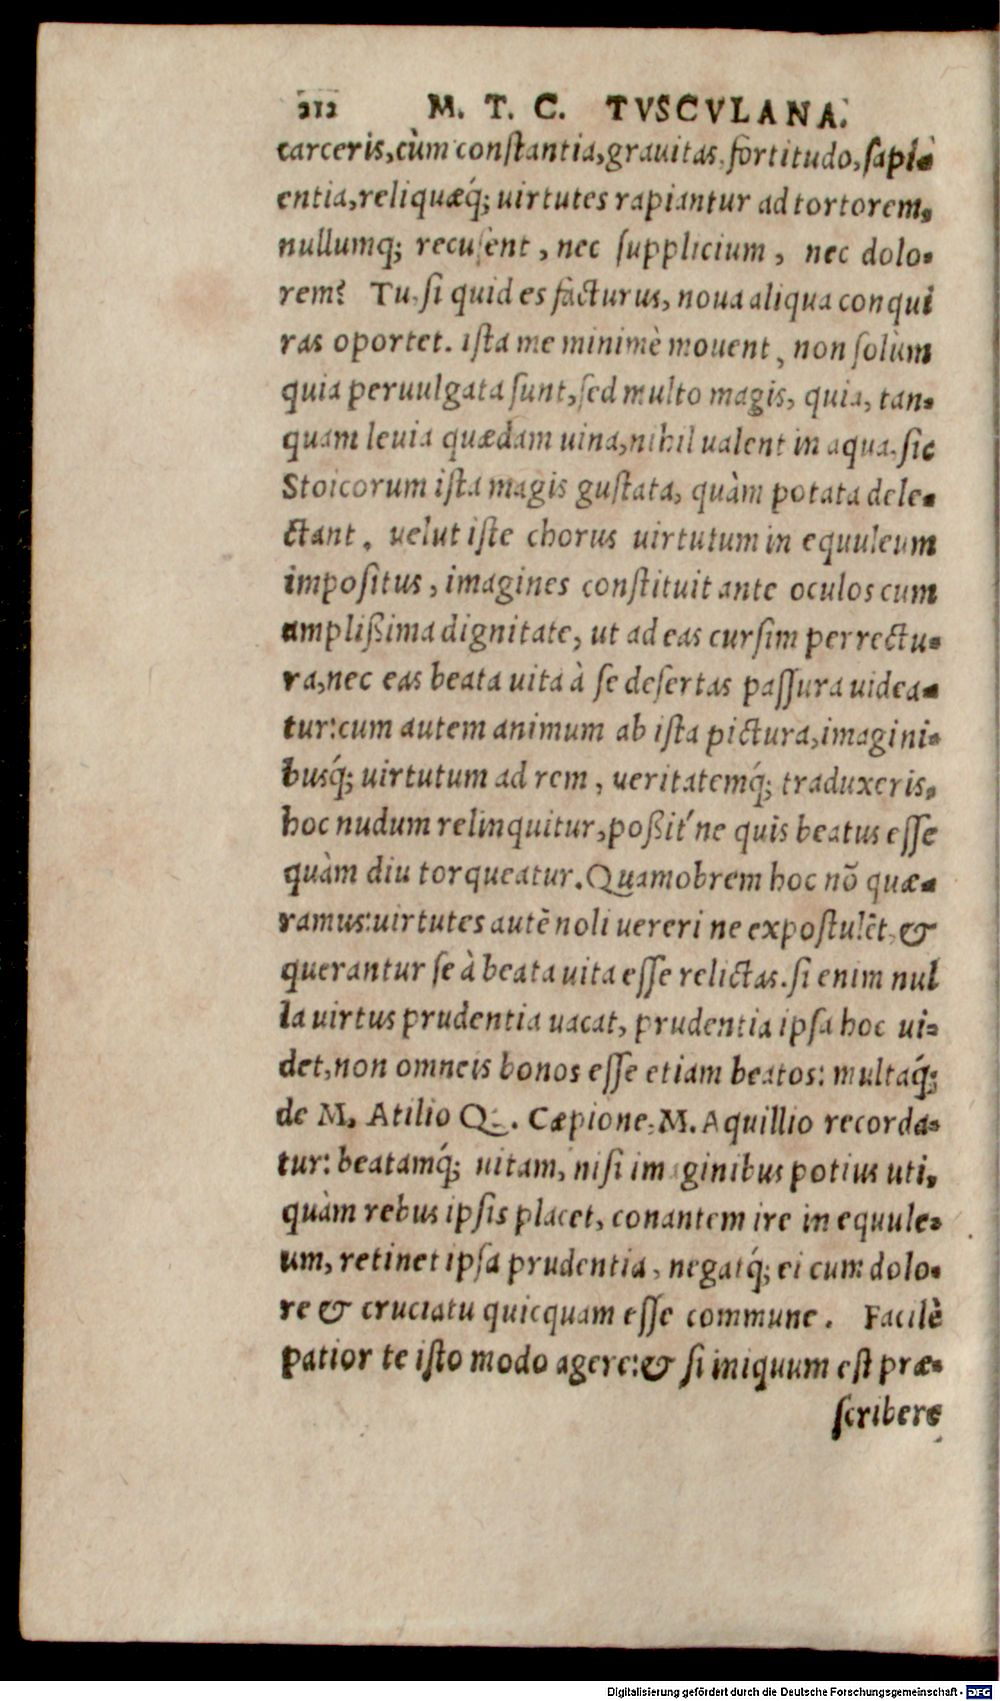 212 M. T. C. TVSCVLANA.
carceris, cùm constantia, grauitas, fortitudo, sapi-
entia, reliquæq́; uirtutes rapiantur ad tortorem,
nullumq; recusent, nec supplicium, nec dolo-
rem? Tu, si quid es facturus, noua aliqua conqui
ras oportet. ista me minimè mouent, non solùm
quia peruulgata sunt, sed multo magis, quia, tan-
quam leuia quædam uina, nihil ualent in aqua, sic
Stoicorum ista magis gustata, quàm potata dele-
ctant. uelut iste chorus uirtutum in equuleum
impositus, imagines constituit ante oculos cum
amplißima dignitate, ut ad eas cursim perrectu-
ra, nec eas beata uita à se desertas passura uidea-
tur: cum autem animum ab ista pictura, imagini-
busq́; uirtutum ad rem, ueritatemq́; traduxeris,
hoc nudum relinquitur, poßit'ne quis beatus esse
quàm diu torqueatur. Quamobrem hoc nō quæ-
ramus: uirtutes autē noli uereri ne expostulēt, &
querantur se à beata uita esse relictas. si enim nul
la uirtus prudentia uacat, prudentia ipsa hoc ui-
det, non omneis bonos esse etiam beatos: multaq́;
de M. Atilio Q. Cæpione, M. Aquillio recorda-
tur: beatamq́; uitam, nisi imaginibus potius uti,
quàm rebus ipsis placet, conantem ire in equule-
um, retinet ipsa prudentia, negatq́; ei cum dolo-
re & cruciatu quicquam esse commune. Facilè
patior te isto modo agere: & si iniquum est præ-
scribere
Digitalisierung gefördert durch die Deutsche Forschungsgemeinschaft - DFG